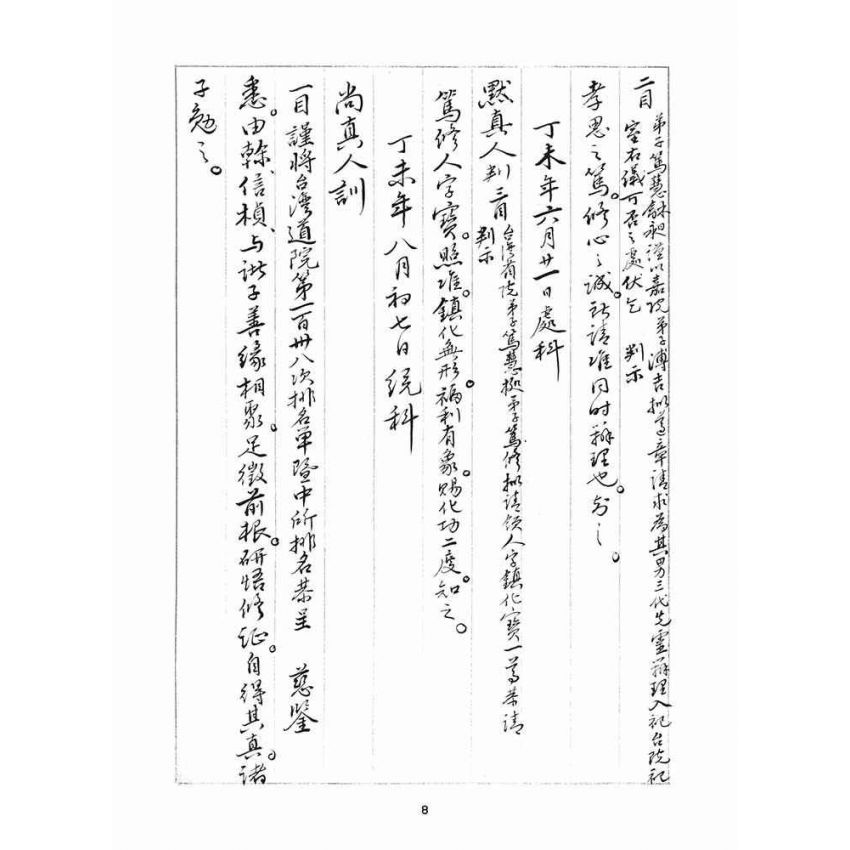 二目 弟子篤慧龢昶謹以嘉院弟子溥吉擬遵章請求為其男三代先靈辦理入祀台院祀
室右儀可否之處伏乞 判示
孝思之篤。修心之誠。所請准同时辦理也。勉之。
丁未年六月廿一日處科
默真人判 三目 台灣省院弟子篤慧 弟子篤修擬請領人字鎮化寶一尊恭請
判示
篤修人字寶。照准。鎮化無形。福利有象。賜化功二度。知之。
丁未年八月初七日統科
尚真人訓
一目 謹將台灣道院第一百卅八次排名單暨中所排名恭呈 慈鑒
悉。由榦、信楨、与諸子善缘相聚。足徵前根。研悟修証。自得其真。諸
子勉之。
8